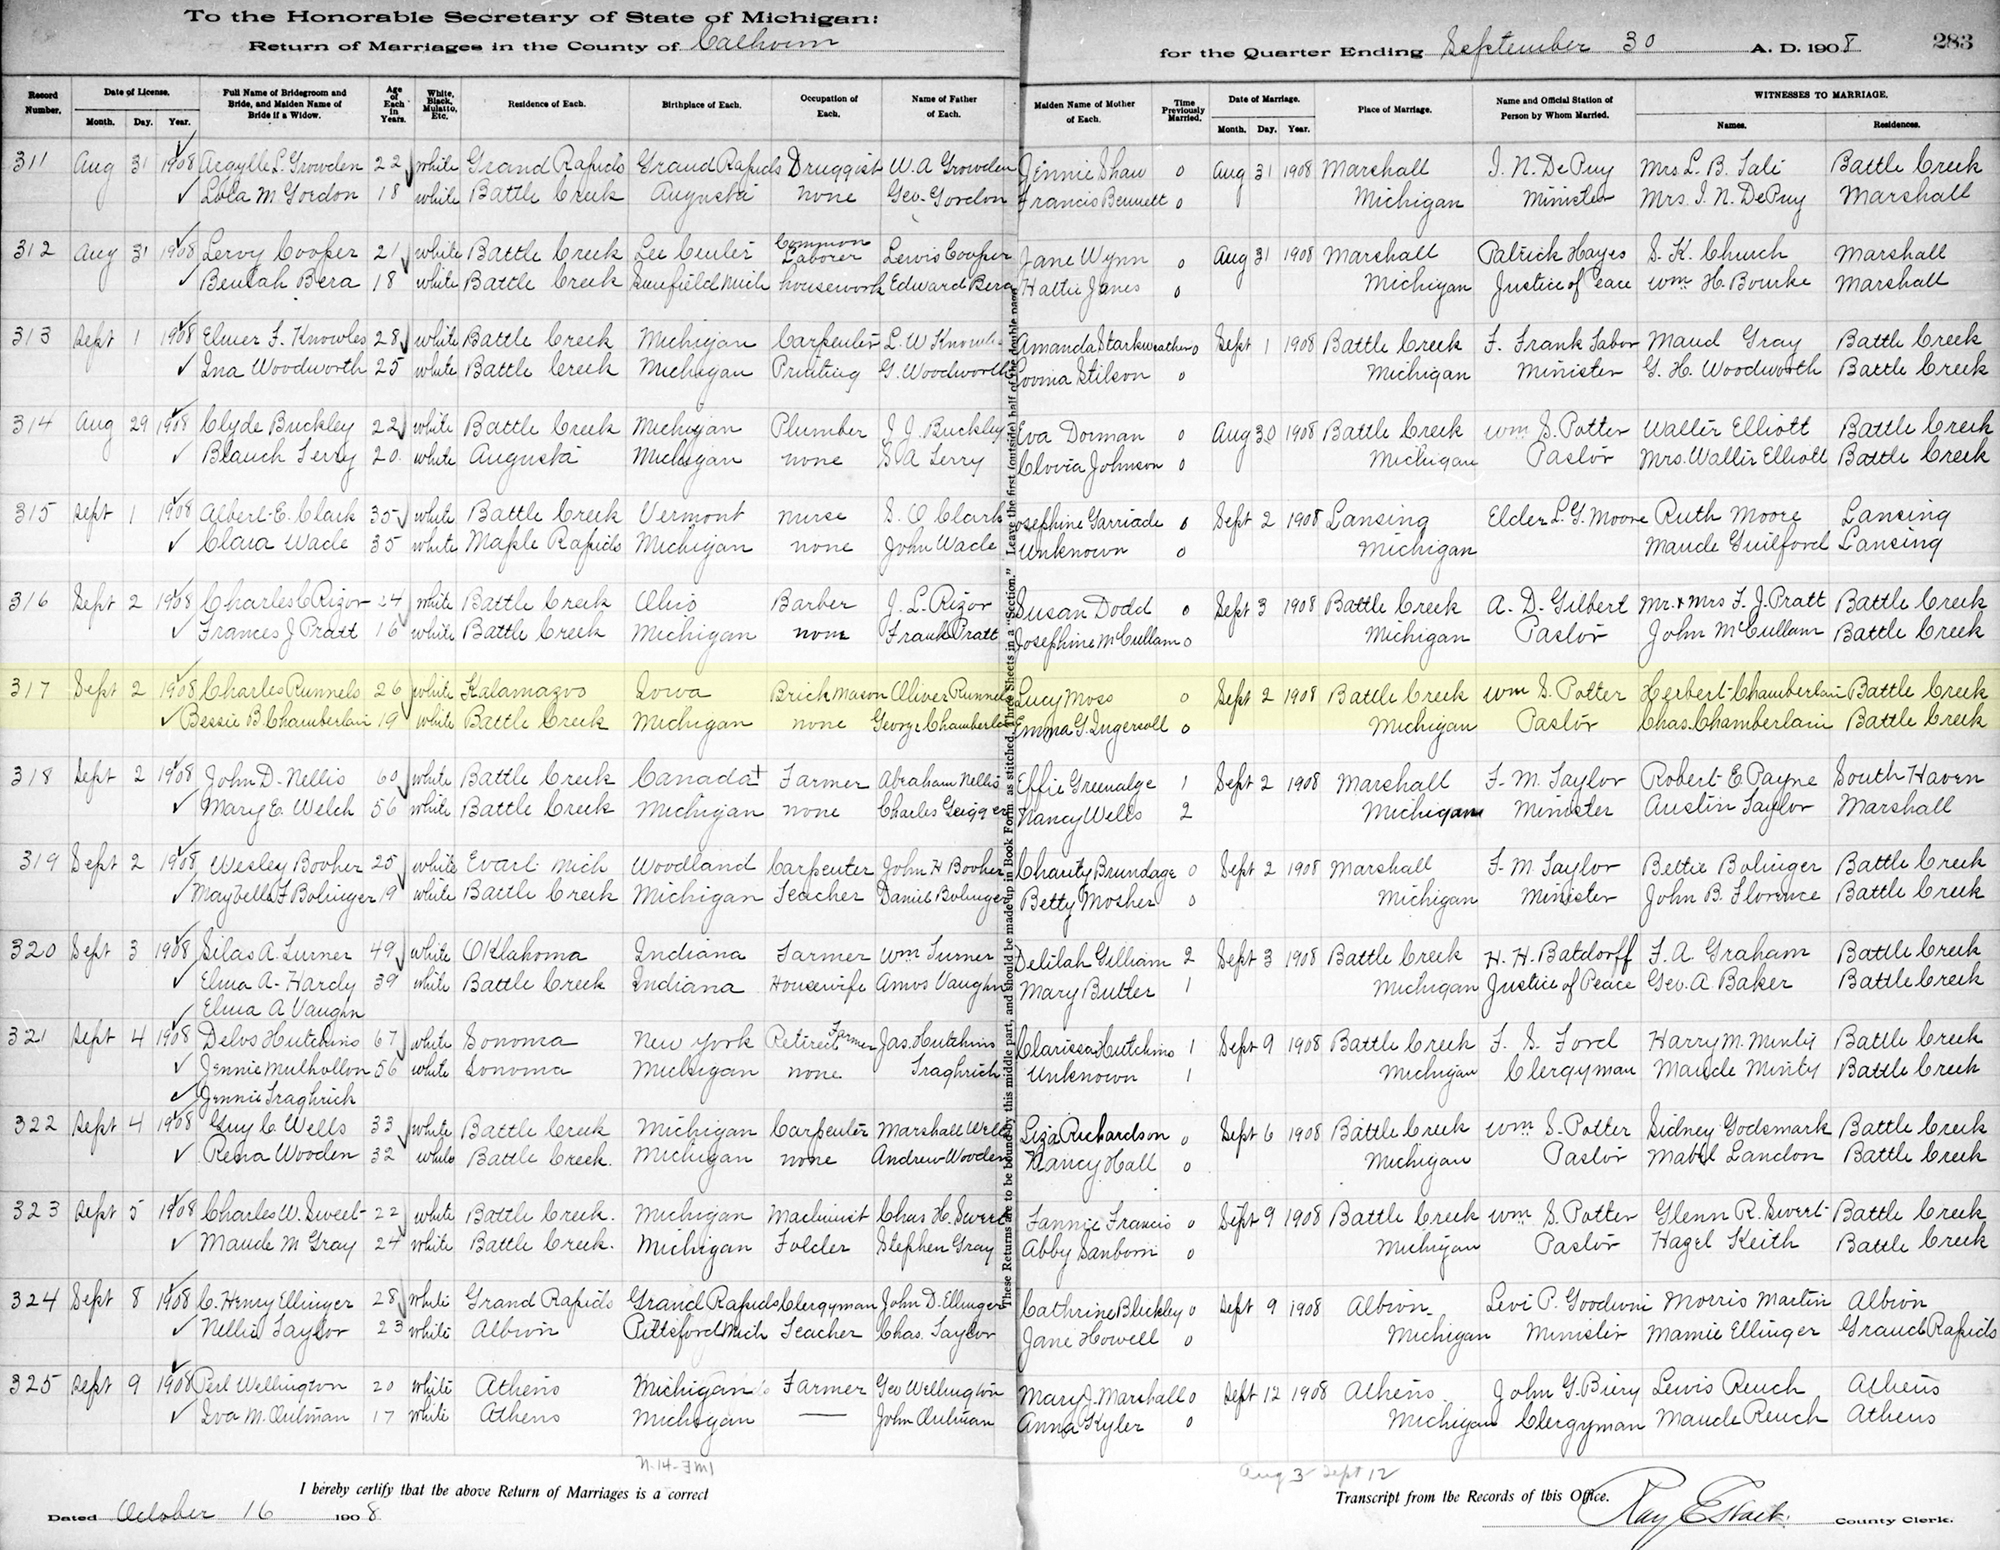 To the Honorable Secretary of State of Michigan:
Return of Marriages in the County of Calhoun for the Quarter Ending September 30 A. D. 1908 283
Record Number. Date of License. Month. Day. Year. Full Name of Bridegroom and Bride, and Maiden Name of Bride if a Widow. Age of Each in Years. White, Black, Mulatto, Etc. Residence of Each. Birthplace of Each. Occupation of Each. Name of Father of Each. Maiden Name of Mother of Each. Time Previously Married. Date of Marriage. Month. Day. Year. Place of Marriage. Name and Official Station of Person by Whom Married. WITNESSES TO MARRIAGE. Names. Residences.
311 Aug 31 1908 Argylle L. Growden 22 white Grand Rapids Grand Rapids Druggist W. A Growden Jennie Shaw 0 Aug 31 1908 Marshall I. N. DePuy Mrs. L. B. Tali Battle Creek
Lola M Gordon 18 white Battle Creek Augusta none Geo. Gordon Francis Bennett 0 Michigan Minister Mrs. I. N. DePuy Marshall
312 Aug 31 1908 Leroy Cooper 21 white Battle Creek Common Laborer Lewis Cooper Jane Wynn 0 Aug 31 1908 Marshall Patrick Hayes S. K. Church Marshall
Beulah Bera 18 white Battle Creek Sunfield Mich housework Edward Bera Hattie Janes 0 Michigan Justice of Peace Wm H. Bourke Marshall
313 Sept 1 1908 Elmer F. Knowles 28 white Battle Creek Michigan Carpenter L. W Knowles Amanda Starkweather 0 Sept 1 1908 Battle Creek F. Frank Tabor Maud Gray Battle Creek
Ina Woodworth 25 white Battle Creek Michigan Printing G. Woodworth Stilson 0 Michigan Minister G. H. Woodworth Battle Creek
314 Aug 29 1908 Clyde Buckley 22 white Battle Creek Michigan Plumber J. J. Buckley Eva Dorman 0 Aug 30 1908 Battle Creek Wm S. Potter Walter Elliott Battle Creek
Blanch Terry 20 white Augusta Michigan none S A Terry Clovia Johnson 0 Michigan Pastor Mrs. Walter Elliott Battle Creek
315 Sept 1 1908 Albert E. Clark 35 white Battle Creek Vermont nurse S. O Clark Josephine Garriade 0 Sept 2 1908 Lansing Elder L. G. Moore Ruth Moore Lansing
Clara Wade 35 white Maple Rapids Michigan none John Wade Unknown 0 Michigan Maude Guilford Lansing
316 Sept 2 1908 Charles C Rizor 24 white Battle Creek Ohio Barber J. L. Rizor Susan Dodd 0 Sept 3 1908 Battle Creek A. D. Gilbert Mr. + Mrs F. J. Pratt Battle Creek
Frances J Pratt 16 white Battle Creek Michigan none Frank Pratt Josephine McCullam 0 Michigan Pastor John McCullam Battle Creek
317 Sept 2 1908 Charles Runnels 26 white Kalamazoo Iowa Brick mason Oliver Runnels Lucy Moss 0 Sept 2 1908 Battle Creek Wm S. Potter Herbert Chamberlain Battle Creek
Bessie B Chamberlain 19 white Battle Creek Michigan none George Chamberlain Emma G. Ingersoll 0 Michigan Pastor Chas. Chamberlain Battle Creek
318 Sept 2 1908 John D. Nellis 60 white Battle Creek Canada + Farmer Abraham Nellis Effie Greenalge 1 Sept 2 1908 Marshall F. M. Taylor Robert E. Payne South Haven
Mary E. Welch 56 white Battle Creek Michigan none Charles Nancy Wells 2 Michigan Minister Austin Taylor Marshall
319 Sept 2 1908 Wesley Booher 25 white Evart Mich Woodland Carpenter John H Booher Charity Brundage 0 Sept 2 1908 Marshall F. M. Taylor Bettie Bolinger Battle Creek
Maybelle F Bolinger 19 white Battle Creek Michigan Teacher Daniel Bolinger Betty Mosher 0 Michigan Minister John B. Florence Battle Creek
320 Sept 3 1908 Silas A. Turner 49 white Oklahoma Indiana Farmer Wm Turner Delilah Gilliam 2 Sept 3 1908 Battle Creek H. H. Batdorff F. A. Graham Battle Creek
Elma A. Hardy 39 white Battle Creek Indiana Housewife Amos Vaughn Mary Butler 1 Michigan Justice of Peace Geo. A. Baker Battle Creek
Elma A Vaughn
321 Sept 4 1908 Delos Hutchins 67 white Sonoma New York Retired Farmer Jas. Hutchins Clarissa Hutchins 1 Sept 9 1908 Battle Creek F. S. Ford Harry M. Minty Battle Creek
Jennie Mulhollon 56 white Sonoma Michigan none Traghrich Unknown 1 Michigan Clergyman Maude Minty Battle Creek
Jennie Traghrick
322 Sept 4 1908 Guy C. Wells 33 white Battle Creek Michigan Carpenter Marshall Wells Liza Richardson 0 Sept 6 1908 Battle Creek Wm S. Potter Sidney Godsmark Battle Creek
Rena Wooden 32 white Battle Creek. Michigan none Andrew Wooden Nancy Hall 0 Michigan Pastor Mabel Landon Battle Creek
323 Sept 5 1908 Charles W. Sweet 22 white Battle Creek. Michigan Machinist Chas H. Sweet Fannie Francis 0 Sept 9 1908 Battle Creek Wm S. Potter Glenn R. Sweet Battle Creek
Maude M Gray 24 white Battle Creek. Michigan Folder Stephen Gray Abby Sanborn 0 Michigan Pastor Hazel Keith Battle Creek
324 Sept 8 1908 C. Henry Ellinger 28 white Grand Rapids Grand Rapids Clergyman John D. Ellinger Cathrine Blickley 0 Sept 9 1908 Albion Levi P. Goodwin Morris Martin Albion
Nellie Taylor 23 white Albion Pittsford Mich Teacher Chas. Taylor Jane Howell 0 Michigan Minister Mamie Ellinger Grand Rapids
325 Sept 9 1908 Perl Wellington 20 white Athens Michigan Farmer Geo Wellington Mary J. Marshall 0 Sept 12 1908 Athens John G. Biery Lewis Reuch Athens
Iva M. Outman 17 white Athens Michigan — John Outman Anna Kyler 0 Michigan Clergyman Maude Reuch Athens
These Returns are to be bound by this middle part, and should be made up in Book Form, as stitched, Three Sheets in a "Section." Leave the first (outside) half of the double page
Aug 3 - Sept 12
I hereby certify that the above Return of Marriages is a correct Transcript from the Records of this Office.
Dated October 16 1908 Ray E Hart County Clerk.